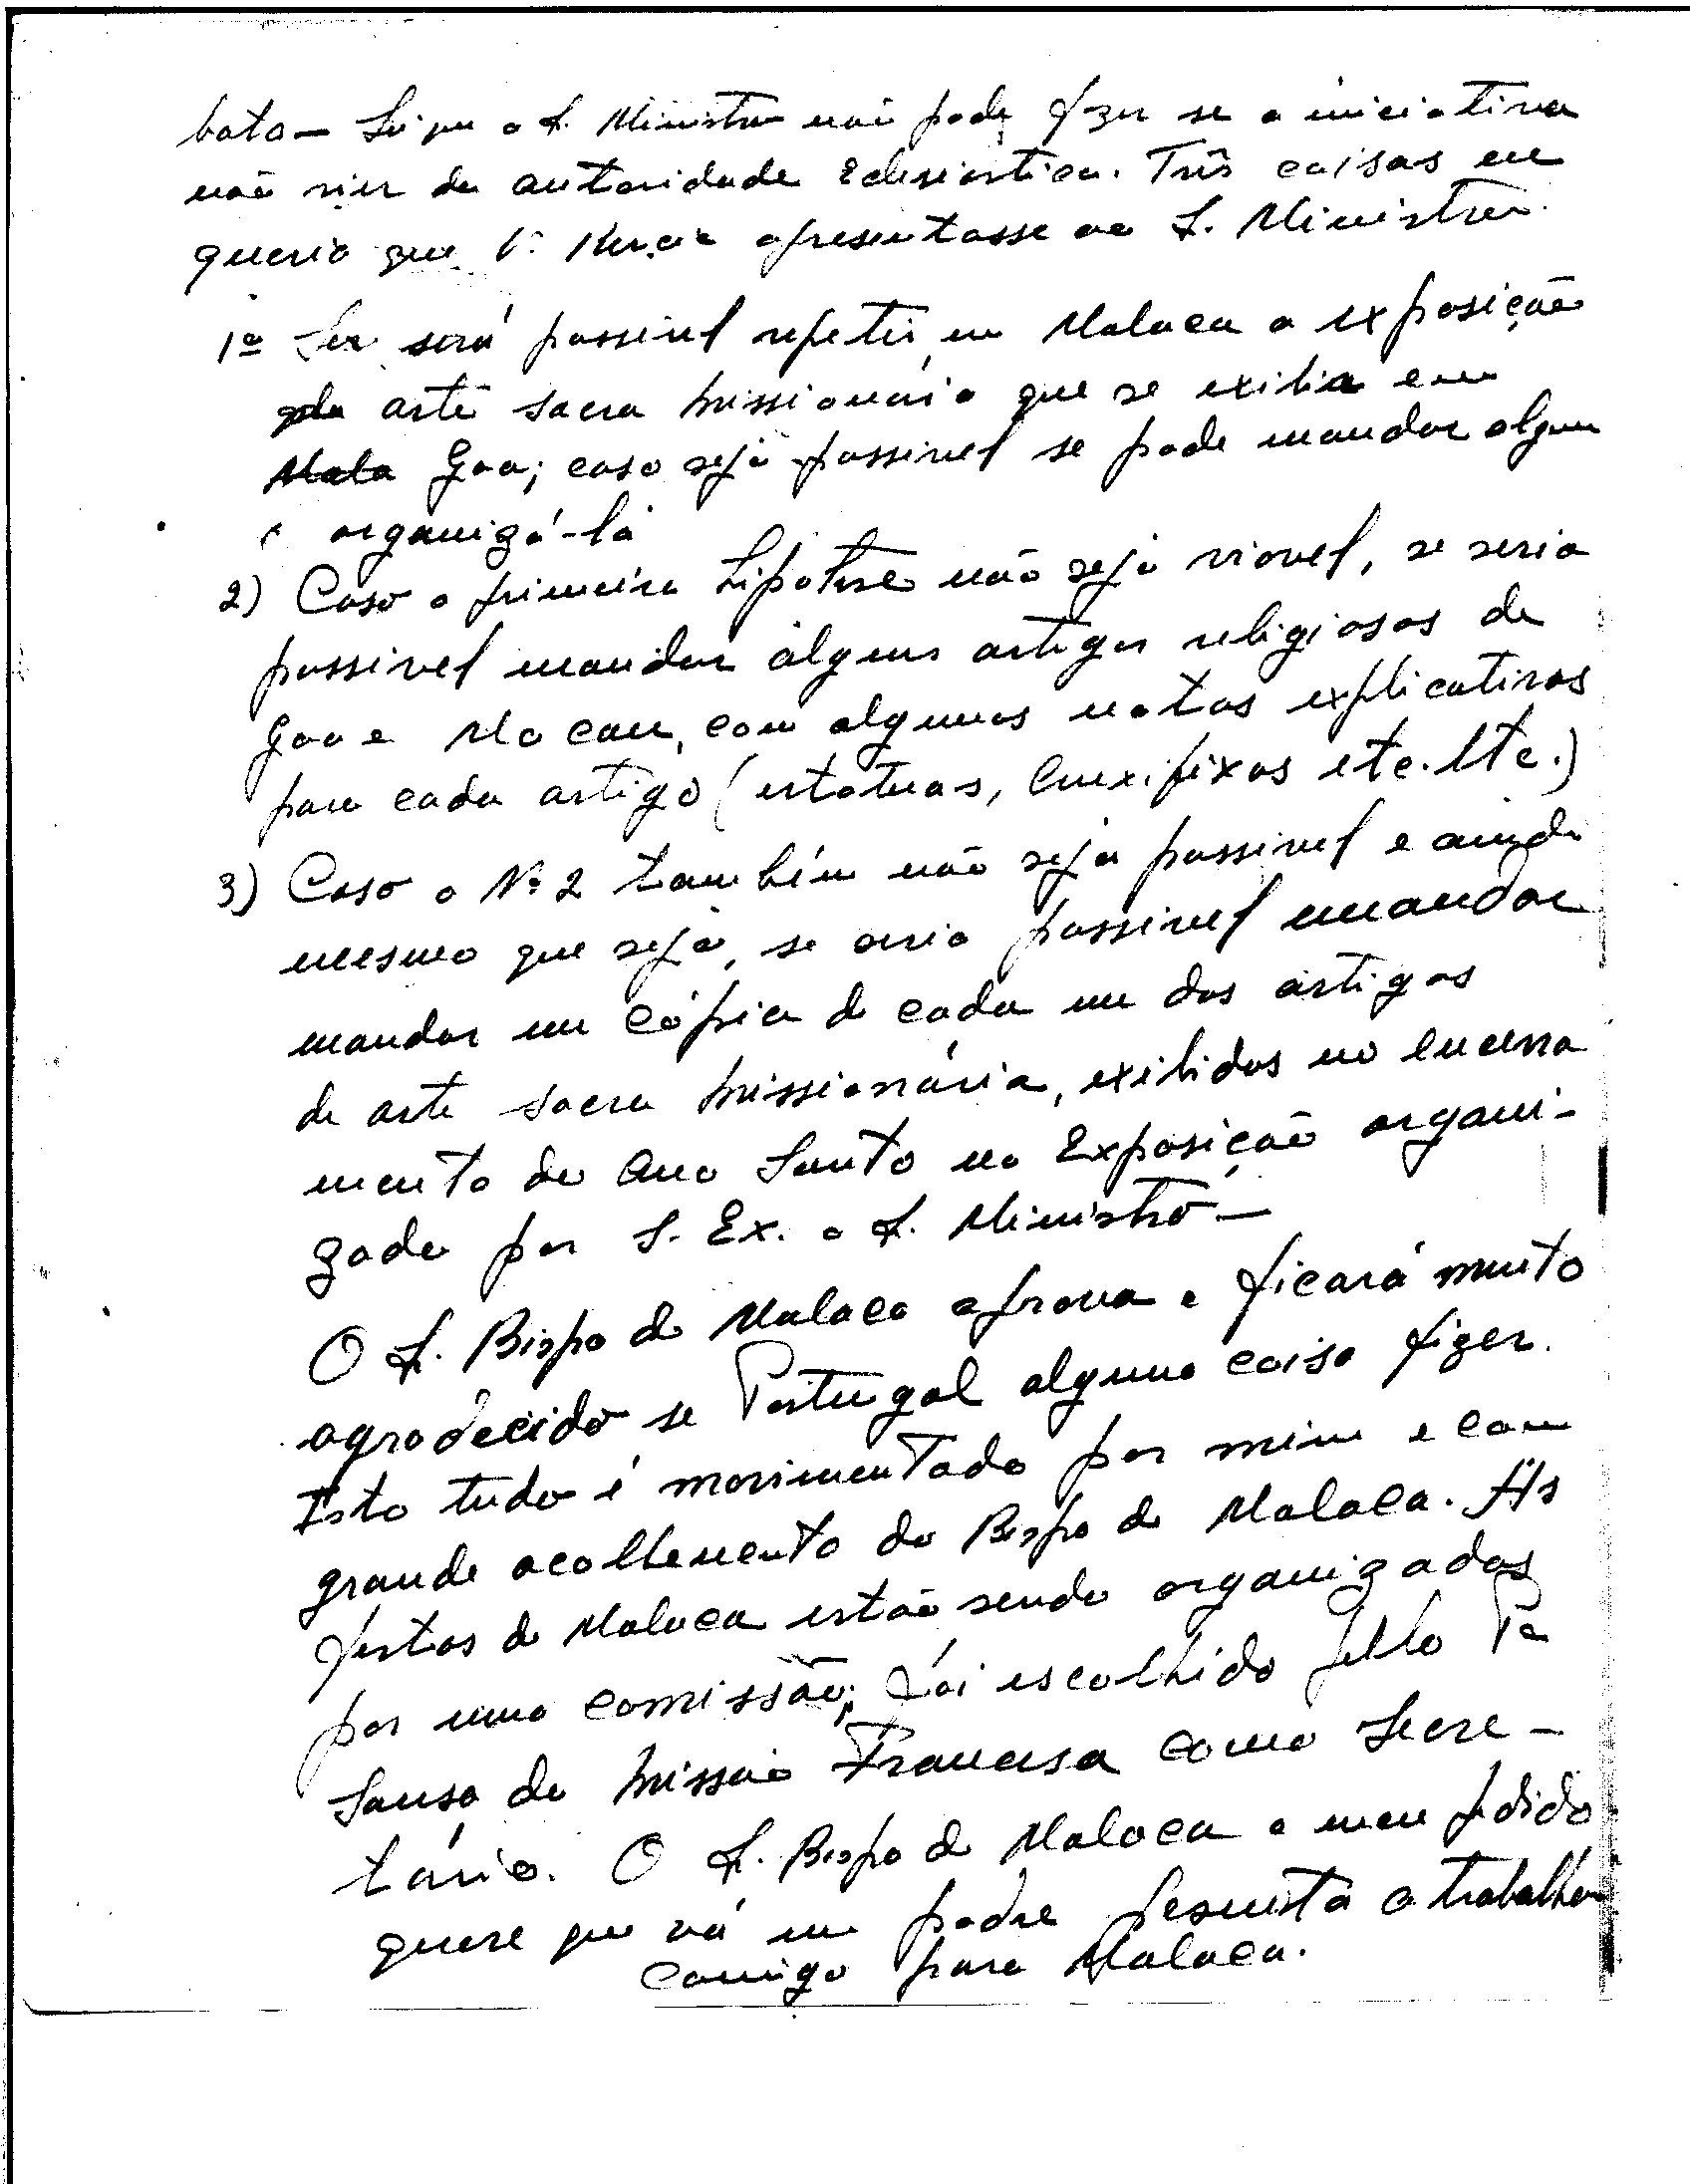 bato — Sei que o S. Ministro não pode fazer se a iniciativa
não vier da autoridade Eclesiástica. Três coisas eu
queria que V. Revcia apresentasse ao S. Ministro.
1º Se será possivel repetir, em Malaca a exposição
de arte sacra missionária que se exibiu em
Mala Goa; caso seja possivel se pode mandar alguem
organizá-la
2) Caso a primeira hipotese não seja viavel, se seria
possivel mandar alguns artigos religiosos de
Goa e Macau, com algumas notas explicativas
para cada artigo (estatuas, Crucifixos etc. etc.)
3) Caso o Nº 2 também não seja possivel e ainda
mesmo que seja, se seria possivel mandar
mandar um cópia de cada um dos artigos
de arte sacra missionária, exibidos no encerra
mento do Ano Santo na Exposição organi-
zada por S. Ex. o S. Ministro —
O S. Bispo de Malaca aprova e ficará muito
agradecido se Portugal alguma coisa fizer.
Isto tudo é movimentado por mim e com
grande acolhemento do Bispo de Malaca. As
festas de Malaca estão sendo organizadas
por uma comissão; fói escolhido pello Pe
Sousa da missão Francesa como Secre-
tário. O S. Bispo de Malaca a meu pedido
quere que vá um padre Jesuista a trabalhar
comigo para Malaca.